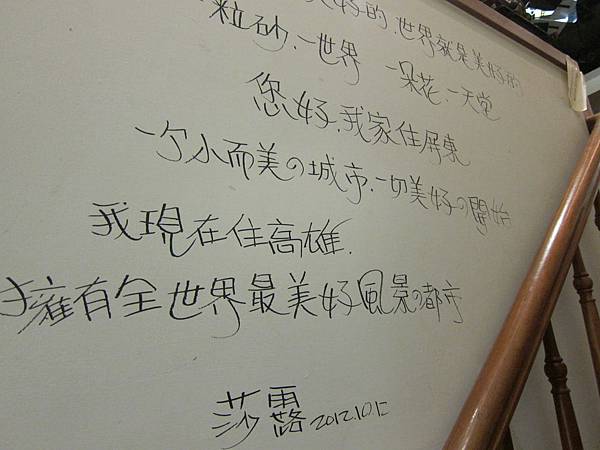 美好的.世界就是美好的
一粒砂.一世界 一朵花.一天堂
您好.我家住屏東
一个小而美の城市.一切美好の開始
我現在住高雄.
擁有全世界最美好風景の都市
莎露 2012.10.12